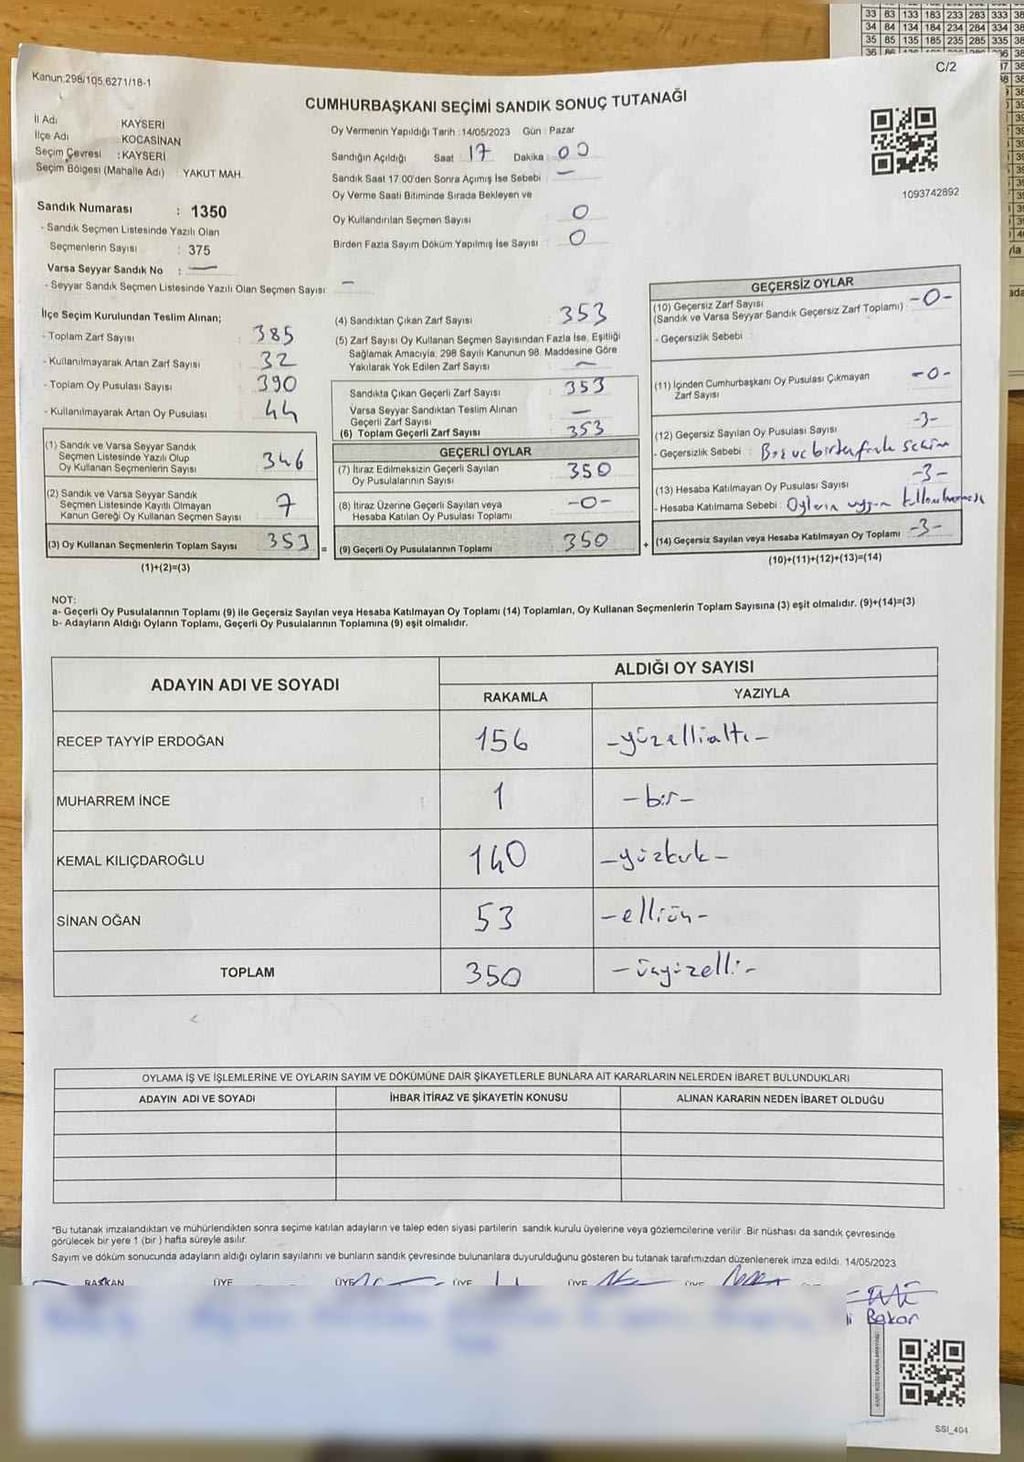 33 83 133 183 233 283 333
34 84 134 184 234 284 334
35 85 135 185 235 285 335
Kanun:298/105,6271/18-1
C/2
CUMHURBAŞKANI SEÇİMİ SANDIK SONUÇ TUTANAĞI
İl Adı KAYSERİ
İlçe Adı KOCASİNAN
Seçim Çevresi :KAYSERİ
Seçim Bölgesi (Mahalle Adı) YAKUT MAH.
Sandık Numarası : 1350
- Sandık Seçmen Listesinde Yazılı Olan
Seçmenlerin Sayısı : 375
Varsa Seyyar Sandık No : —
- Seyyar Sandık Seçmen Listesinde Yazılı Olan Seçmen Sayısı: —
Oy Vermenin Yapıldığı Tarih :14/05/2023 Gün : Pazar
Sandığın Açıldığı Saat : 17 Dakika : 00
Sandık Saat 17.00'den Sonra Açımış İse Sebebi : —
Oy Verme Saati Bitiminde Sırada Bekleyen ve
Oy Kullandırılan Seçmen Sayısı : 0
Birden Fazla Sayım Döküm Yapılmış İse Sayısı : 0
1093742892
İlçe Seçim Kurulundan Teslim Alınan;
- Toplam Zarf Sayısı : 385
- Kullanılmayarak Artan Zarf Sayısı : 32
- Toplam Oy Pusulası Sayısı : 390
- Kullanılmayarak Artan Oy Pusulası : 44
(1) Sandık ve Varsa Seyyar Sandık
Seçmen Listesinde Yazılı Olup
Oy Kullanan Seçmenlerin Sayısı : 346
(2) Sandık ve Varsa Seyyar Sandık
Seçmen Listesinde Kayıtlı Olmayan
Kanun Gereği Oy Kullanan Seçmen Sayısı : 7
(3) Oy Kullanan Seçmenlerin Toplam Sayısı : 353 =
(1)+(2)=(3)
(4) Sandıktan Çıkan Zarf Sayısı : 353
(5) Zarf Sayısı Oy Kullanan Seçmen Sayısından Fazla İse, Eşitliği
Sağlamak Amacıyla, 298 Sayılı Kanunun 98. Maddesine Göre
Yakılarak Yok Edilen Zarf Sayısı : —
Sandıkta Çıkan Geçerli Zarf Sayısı : 353
Varsa Seyyar Sandıktan Teslim Alınan
Geçerli Zarf Sayısı : —
(6) Toplam Geçerli Zarf Sayısı : 353
GEÇERLİ OYLAR
(7) İtiraz Edilmeksizin Geçerli Sayılan
Oy Pusulalarının Sayısı : 350
(8) İtiraz Üzerine Geçerli Sayılan veya
Hesaba Katılan Oy Pusulası Toplamı : -0-
(9) Geçerli Oy Pusulalarının Toplamı : 350 +
GEÇERSİZ OYLAR
(10) Geçersiz Zarf Sayısı
(Sandık ve Varsa Seyyar Sandık Geçersiz Zarf Toplamı) : -0-
- Geçersizlik Sebebi :
(11) İçinden Cumhurbaşkanı Oy Pusulası Çıkmayan
Zarf Sayısı : -0-
(12) Geçersiz Sayılan Oy Pusulası Sayısı : -3-
- Geçersizlik Sebebi : Boş ve birden fazla seçim
(13) Hesaba Katılmayan Oy Pusulası Sayısı : -3-
- Hesaba Katılmama Sebebi : Oyların uygun kullanılmaması
(14) Geçersiz Sayılan veya Hesaba Katılmayan Oy Toplamı : -3-
(10)+(11)+(12)+(13)=(14)
NOT:
a- Geçerli Oy Pusulalarının Toplamı (9) ile Geçersiz Sayılan veya Hesaba Katılmayan Oy Toplamı (14) Toplamları, Oy Kullanan Seçmenlerin Toplam Sayısına (3) eşit olmalıdır. (9)+(14)=(3)
b- Adayların Aldığı Oyların Toplamı, Geçerli Oy Pusulalarının Toplamına (9) eşit olmalıdır.
ADAYIN ADI VE SOYADI ALDIĞI OY SAYISI
RAKAMLA YAZIYLA
RECEP TAYYİP ERDOĞAN 156 -yüzellialtı-
MUHARREM İNCE 1 -bir-
KEMAL KILIÇDAROĞLU 140 -yüzkırk-
SİNAN OĞAN 53 -elliüç-
TOPLAM 350 -üçyüzelli-
OYLAMA İŞ VE İŞLEMLERİNE VE OYLARIN SAYIM VE DÖKÜMÜNE DAİR ŞİKAYETLERLE BUNLARA AİT KARARLARIN NELERDEN İBARET BULUNDUKLARI
ADAYIN ADI VE SOYADI İHBAR İTİRAZ VE ŞİKAYETİN KONUSU ALINAN KARARIN NEDEN İBARET OLDUĞU
*Bu tutanak imzalandıktan ve mühürlendikten sonra seçime katılan adayların ve talep eden siyasi partilerin sandık kurulu üyelerine veya gözlemcilerine verilir. Bir nüshası da sandık çevresinde
görülecek bir yere 1 (bir ) hafta süreyle asılır.
Sayım ve döküm sonucunda adayların aldığı oyların sayılarını ve bunların sandık çevresinde bulunanlara duyurulduğunu gösteren bu tutanak tarafımızdan düzenlenerek imza edildi. 14/05/2023
BAŞKAN ÜYE ÜYE ÜYE ÜYE ÜYE
Bekar
SSİ_404